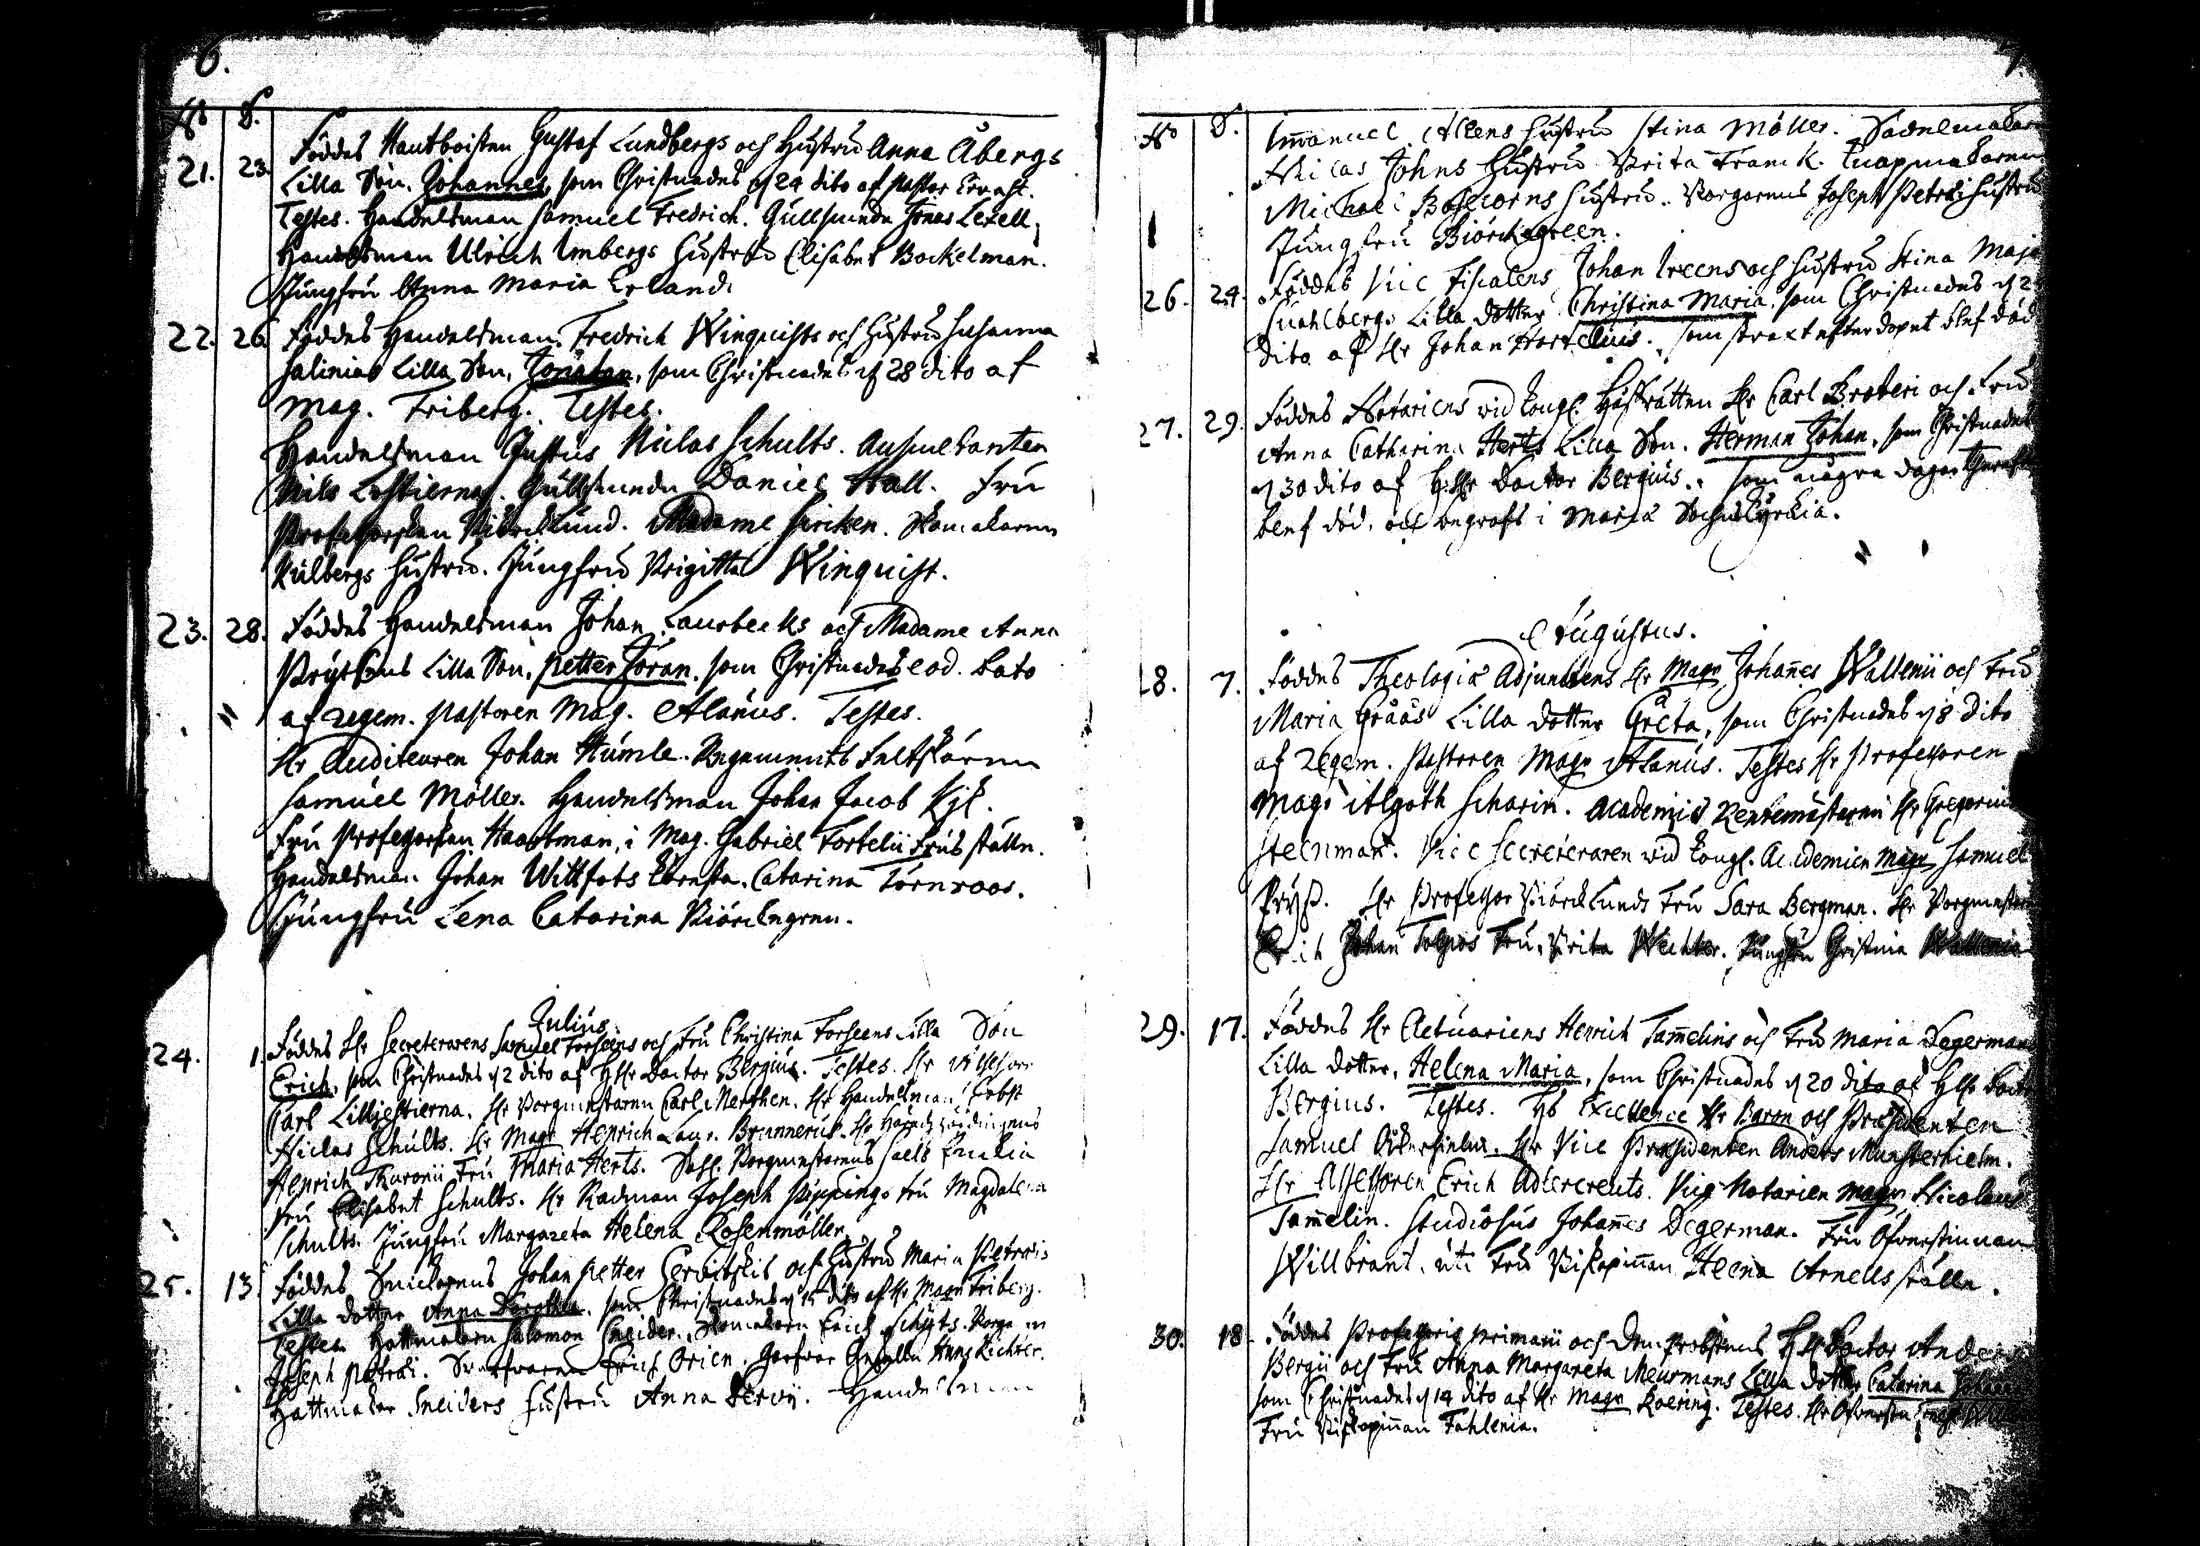 6.
No D.
21. 23. Föddes Hautboisten Gustaf Lundbergs och Hustru Anna Åbergs
Lilla Son. Johannes, som Christnades d 24 dito af Pastor Ernast.
Testes. Handelsman Samuel Fredrich. Gullsmeden Jonas Lexell,
Handelsman Ulrich Umbergs Hustru Elisabet Bockelman.
Jungfru Anna Maria Erland.
22. 26 Föddes Handelsman Fredrich Winquists och Hustru Susanna
Salinias Lilla Son, Jonatan, som Christnades d 28 dito af
Mag. Friberg. Testes.
Handelsman Justus Niclas Schults. Auscultanten
Nils Lostierna. Gullsmeden Daniel Hall. Fru
Professorskan Biörcklund. Madame Kirken. Skomakaren
Kulbergs Hustru. Jungfru Brigitta Winquist.
23. 28. Föddes Handelsman Johan Laurbecks och Madame Anna
Prytzens Lilla Son, Petter Jöran, som Christnades eod. dato
af regem. Pastoren Mag. Alanus. Testes.
Hr Auditeuren Johan Humle. Regements Feltskären
Samuel Möller. Handelsman Johan Jacob Kjk.
Fru Professorskan Haartman, i Mag. Gabriel Fortelii Frus ställe.
Handelsman Johan Wittfots Catarina Törnroos.
Jungfru Lena Catarina Biörckegren.
Julius.
24. 1. Föddes Hr Secreterarens Samuel Forseens och Fru Christina Forseens Lilla Son
Erich, som Christnades d 2 dito af H Hr Doctor Bergius. Testes. Hr Assessor
Carl Lilljestierna. Hr Borgmestaren Carl Merthen. Hr Handelsman
Niclas Schults. Hr Magr Henrich Laur. Brunnerus. Hr Häradshöfdingens
Henrich Thuronii Fru Maria Herts. Sahl. Borgmestarens
Fru Elisabet Schults. Hr Radman Joseph Pippings Fru Magdalena
Schults. Jungfru Margareta Helena Rosenmöller.
25. 13. Föddes Snickarens Johan Petter Cervitskis och Hustru Maria Petrais
Lilla dotter Anna Dorothea, som Christnades d 15 dito af Hr Magr Friberg.
Testes Hattmakaren Salomon Sneider. Skomakaren Erich Schyts. Borgaren
Joseph Petrai. Erich Orien. Hans Richter.
Hattmakar Sneiders Hustru Anna Kervij. Handelsman
7.
No D.
Immanuel Ahlens Hustru Stina Möller. Sadelmakaren
Niclas Johns Hustru Brita Franck.
Michael Hustru. Borgarens Joseph Petrai Hustru
Jungfru Biörckegreen.
26. 24. Föddes Vice Fiscalens Johan Ireens och Hustru Stina Maja
Lilla dotter Christina Maria, som Christnades d 2
dito af Hr Johan Hortelius. som straxt efter dopet blef död
27. 29. Föddes Notariens wid Kongl. Hofrätten Hr Carl Broteri och Fru
Anna Catharina Herts Lilla Son. Herman Johan, som Christnades
d 30 dito af H. Hr Doctor Bergius. som några dagar
blef död, och begrofs i Maria Sochnekyrkia.
Augustus.
28. 7. Föddes Theologiæ Adjunctens Hr Magr Johannes Wallenii och Fru
Maria Grååås Lilla dotter Greta, som Christnades d 8 dito
af regem. Pastoren Magr Alanus. Testes Hr Professoren
Magr Algoth Scharin. Academiæ Rentemästaren Hr Gregorius
Steenman. Vice Secreteraren wid Kongl. Academien Magr Samuel
Pryss. Hr Professor Biörcklunds Fru Sara Bergman. Hr Borgmestaren
Erich Johan Tolpos Fru Brita Wechter. Jungfru Christina Wallenia
29. 17. Föddes Hr Actuariens Henrich Tammelins och Fru Maria Degermans
Lilla dotter, Helena Maria, som Christnades d 20 dito af H Hr Doctor
Bergius. Testes. Hs Excellence Hr Baron och Præsidenten
Samuel Åkerhielm. Hr Vice Præsidenten Anders Munsterhielm.
Hr Assessoren Erich Adlercreuts. Vice Notarien Magr Nicolaus
Tammelin. Studiosus Johannes Degerman. Fru Öfwerstinnan
Willbrant, uti Fru Biskopinnan Helena Arnells ställe.
30. 18. Föddes Professoris primarii och Domprobstens H Hr Doctor Anders
Bergii och Fru Anna Margareta Meurmans Lilla dotter Catarina Johanna
som Christnades d 19 dito af Hr Magr Roering. Testes. Hr Öfwersten
Fru Biskopinnan Fahlenia.